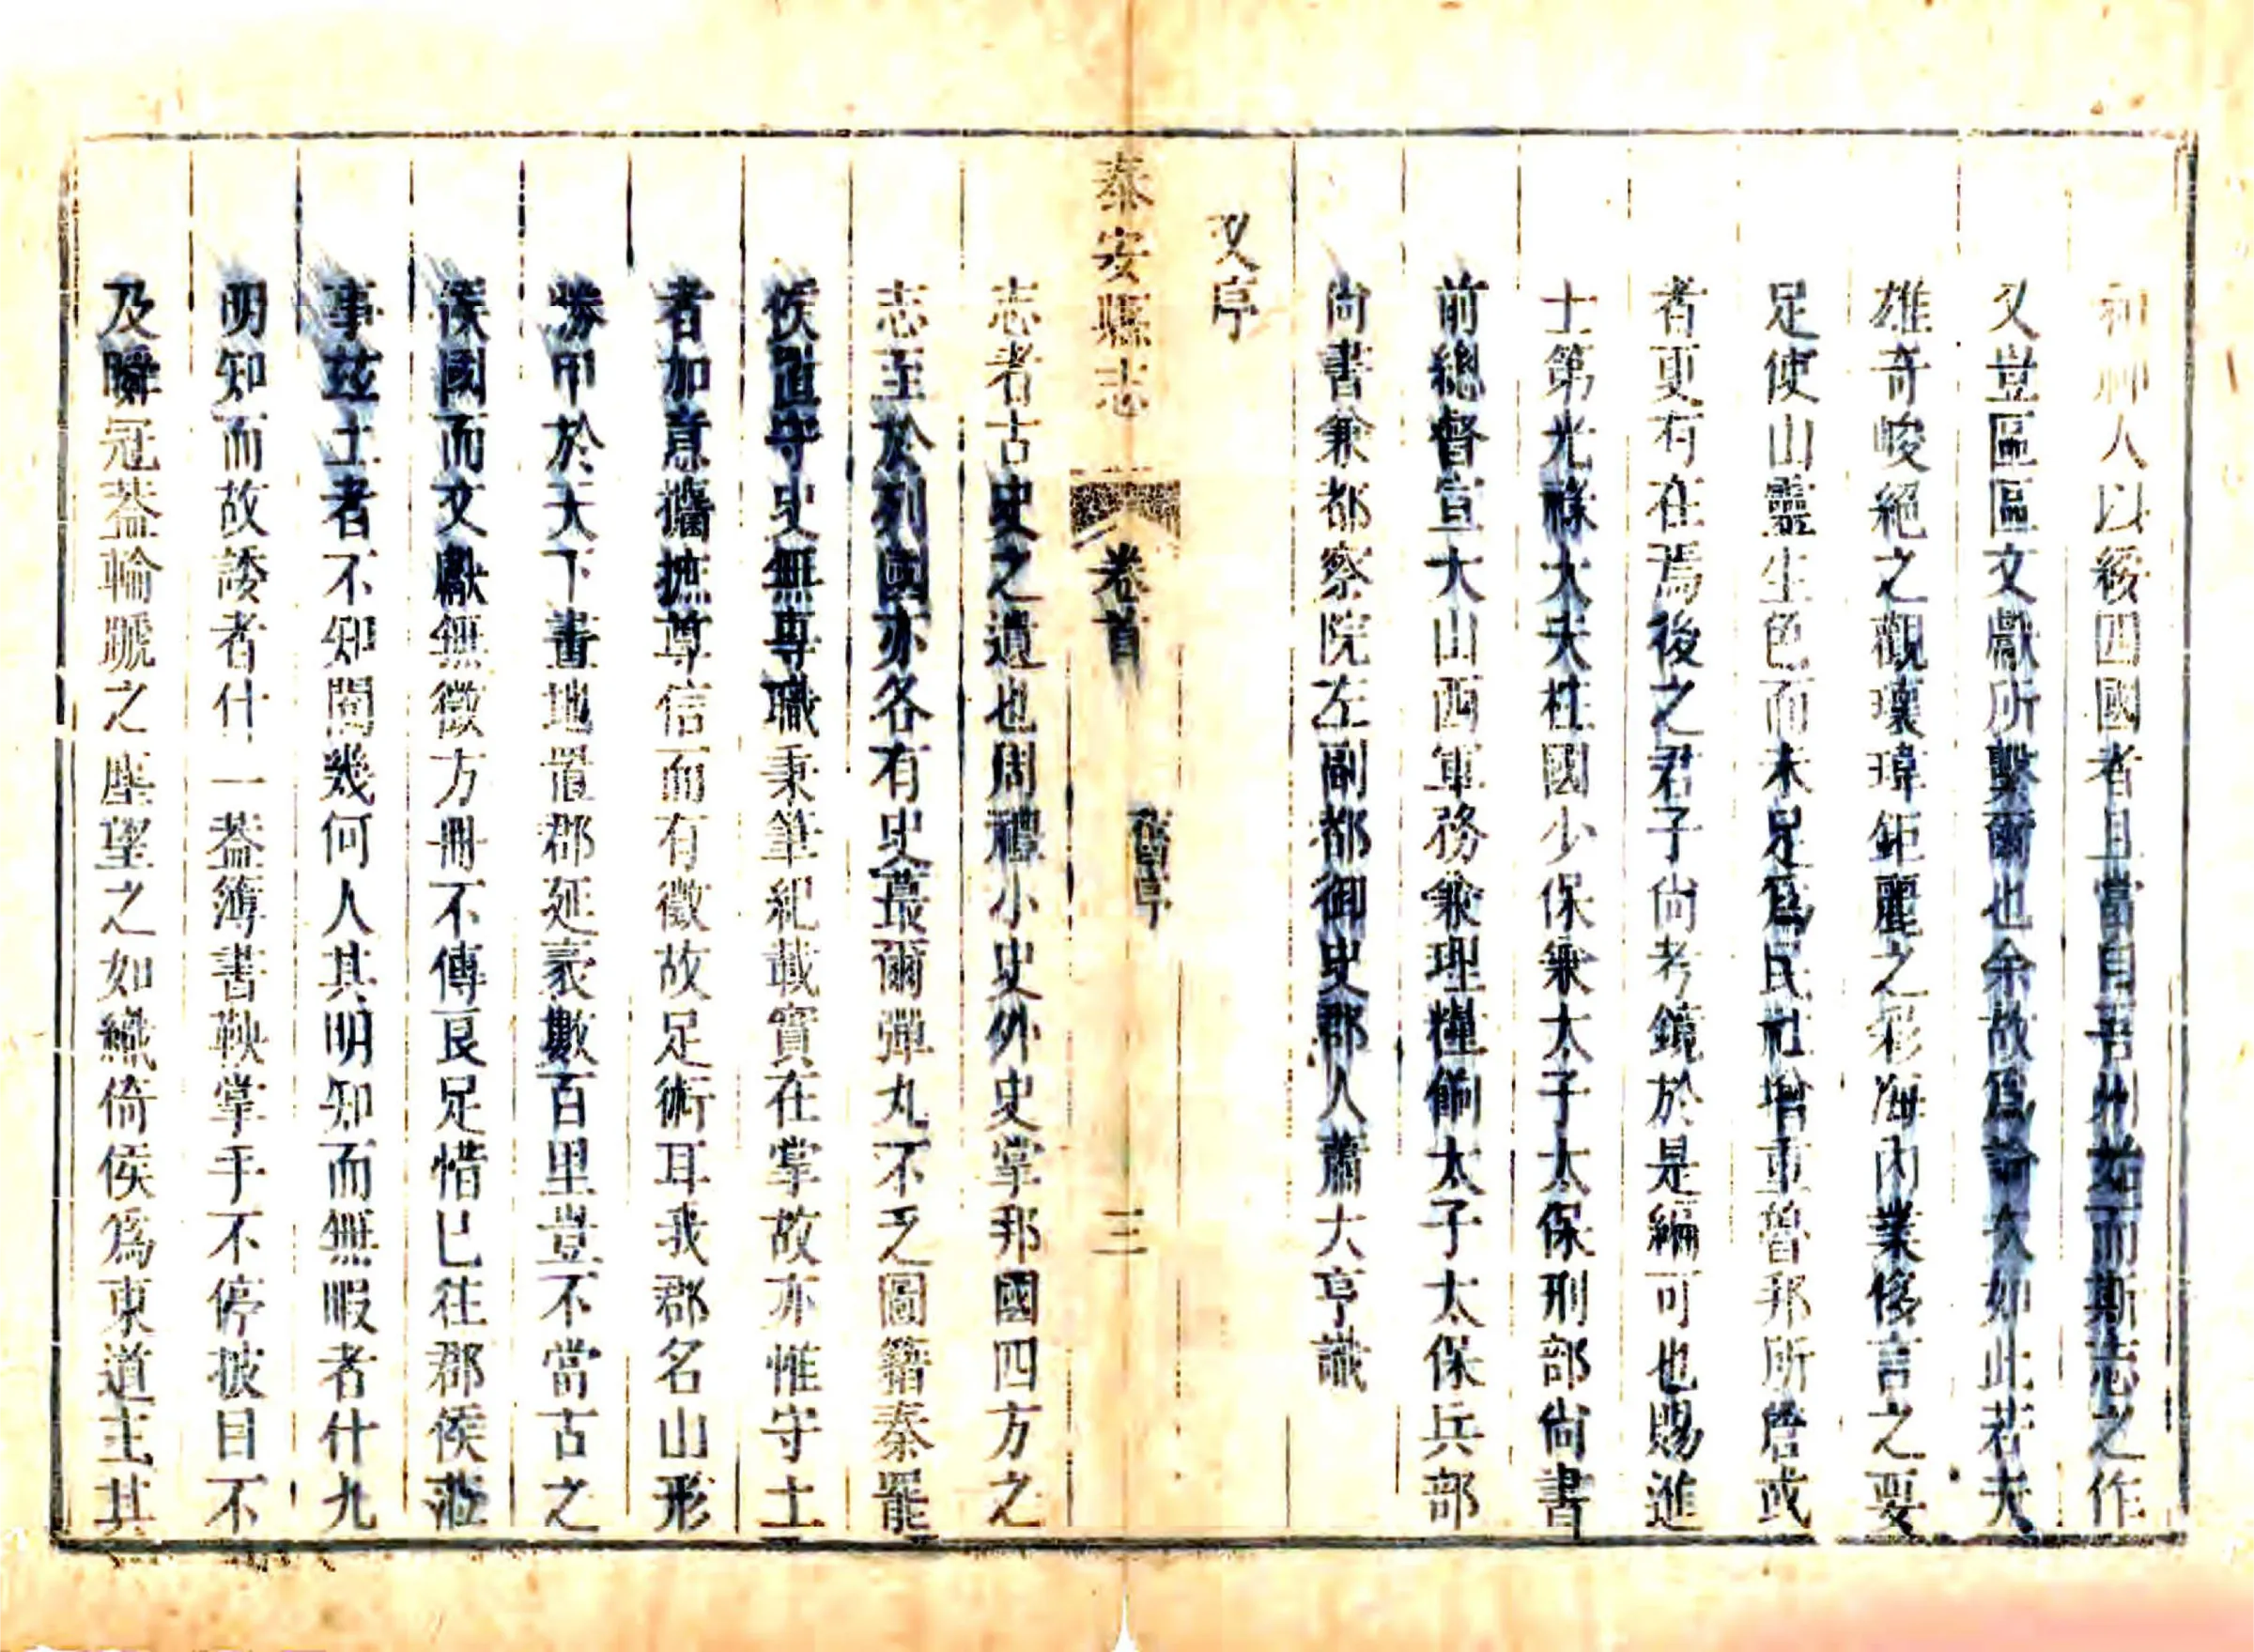 和神人以綏四國者且當自吾州始而斯志之作
又豈區區文獻所繫爾也余故爲論次如此若夫
雄奇峻絕之觀瓌瑋鉅麗之彩海內業侈言之要
足使山靈生色而未足爲民社增重魯邦所詹或
者更有在焉後之君子尙考鏡於是編可也賜進
士第光祿大夫柱國少保兼太子太保刑部尙書
前總督宣大山西軍務兼理糧餉太子太保兵部
尙書兼都察院左副都御史郡人蕭大亨識
又序
泰安縣志 卷首 舊序 三
志者古史之遺也周禮小史外史掌邦國四方之
志至於列國亦各有史蕞爾彈丸不乏圖籍秦罷
侯置守史無專職秉筆紀載實在掌故亦惟守土
者加意蒐摭尊信而有徵故足術耳我郡名山形
勝甲於天下畫地置郡延袤數百里豈不當古之
侯國而文獻無徵方冊不傳良足惜已往郡侯蒞
事茲土者不知閱幾何人其明知而無暇者什九
明知而故諉者什一蓋簿書鞅掌手不停披目不
及瞬冠蓋輪蹏之塵望之如織倚侯爲東道主其